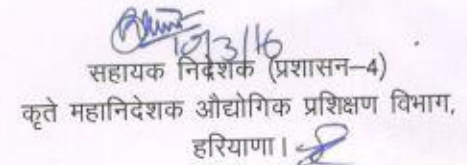 10/3/16
सहायक निदेशक (प्रशासन–4)
कृते महानिदेशक औद्योगिक प्रशिक्षण विभाग,
हरियाणा।